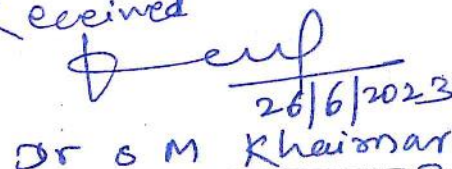 Received
26/6/2023
Dr S M Khairnar